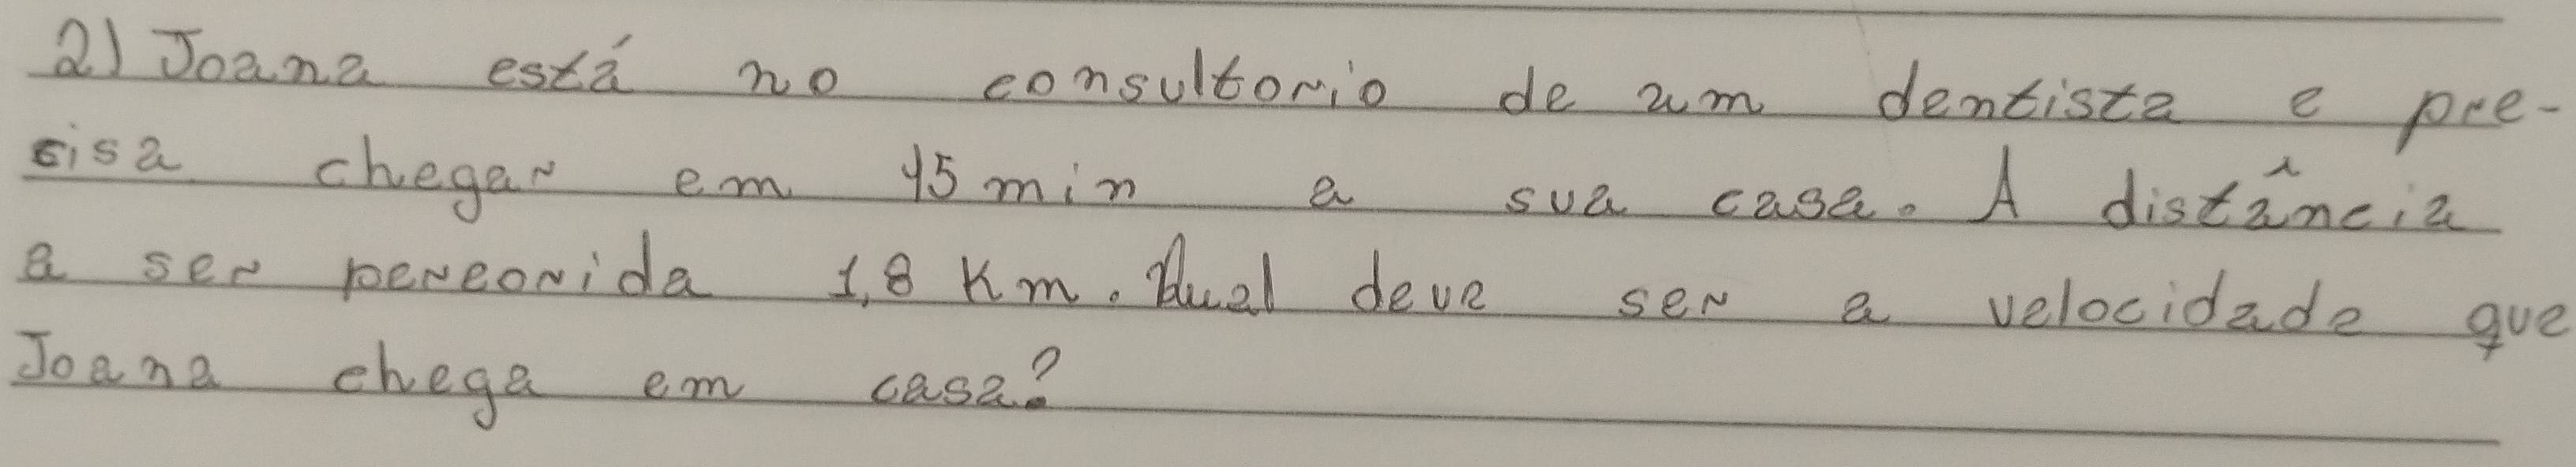 2) Joana está no consultorio de um dentista e pre-
cisa chegar em 15 min a sua casa. A distância
a ser percorida 1,8 Km. Qual deve ser a velocidade que
Joana chega em casa?